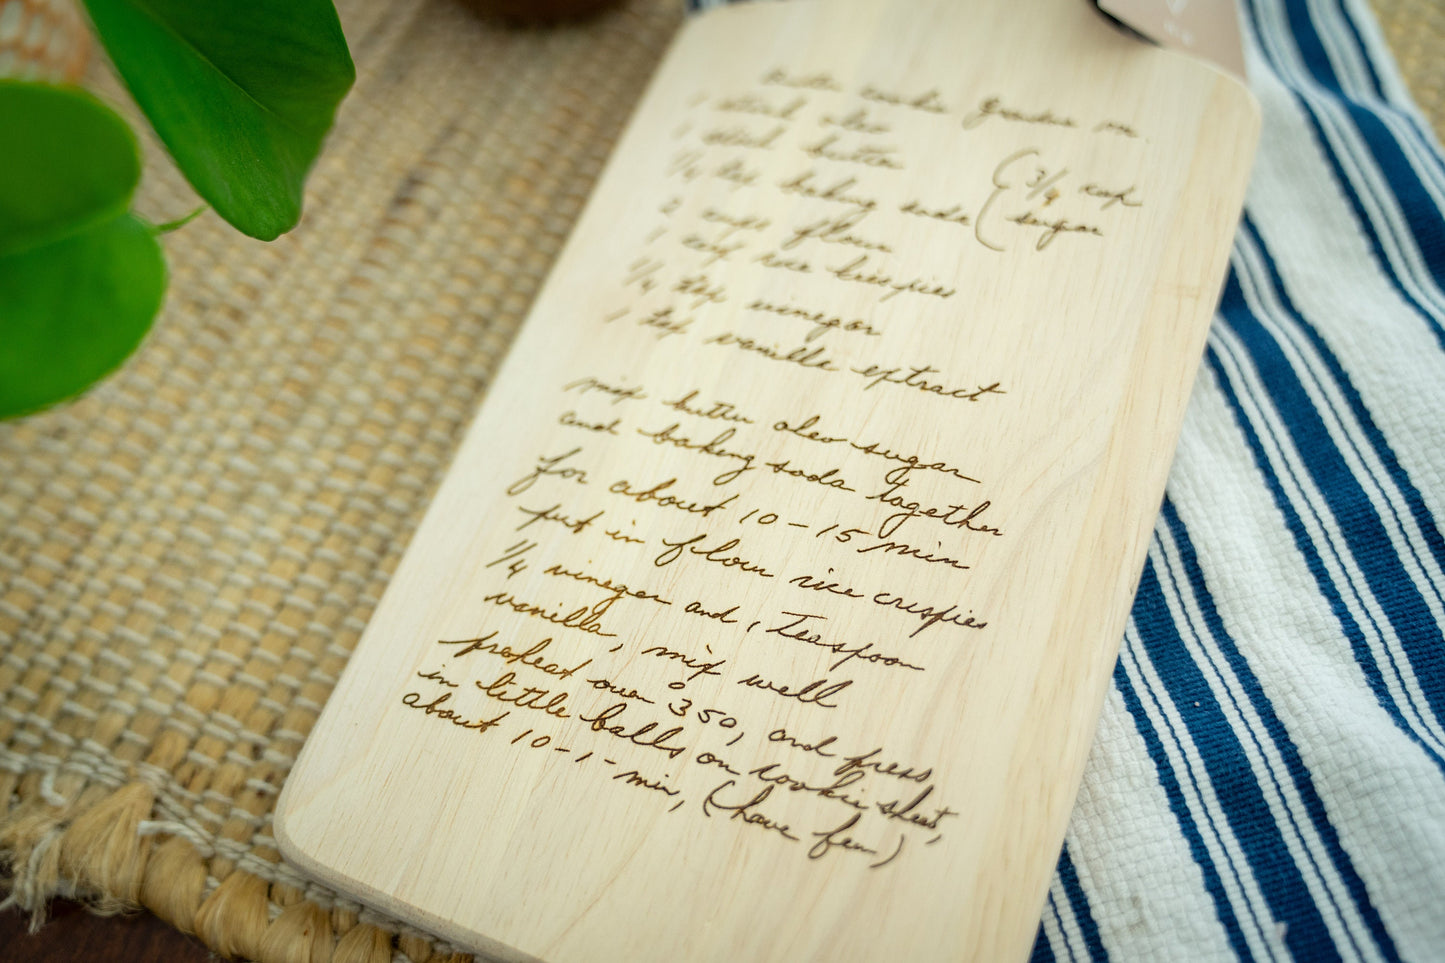 Butter cookie Grandma
1 stick oleo
1 stick butter
1/4 tsp baking soda
( 3/4 cup
( sugar
2 cups flour
1 cup rice krispies
1/4 tsp vinegar
1 tsp vanilla extract
mix butter oleo sugar
and baking soda together
for about 10 - 15 min
put in flour rice crispies
1/4 vinegar and 1 Teaspoon
vanilla, mix well
preheat oven 350, and press
in little balls on cookie sheet,
about 10 - 1 - min, (have fun)